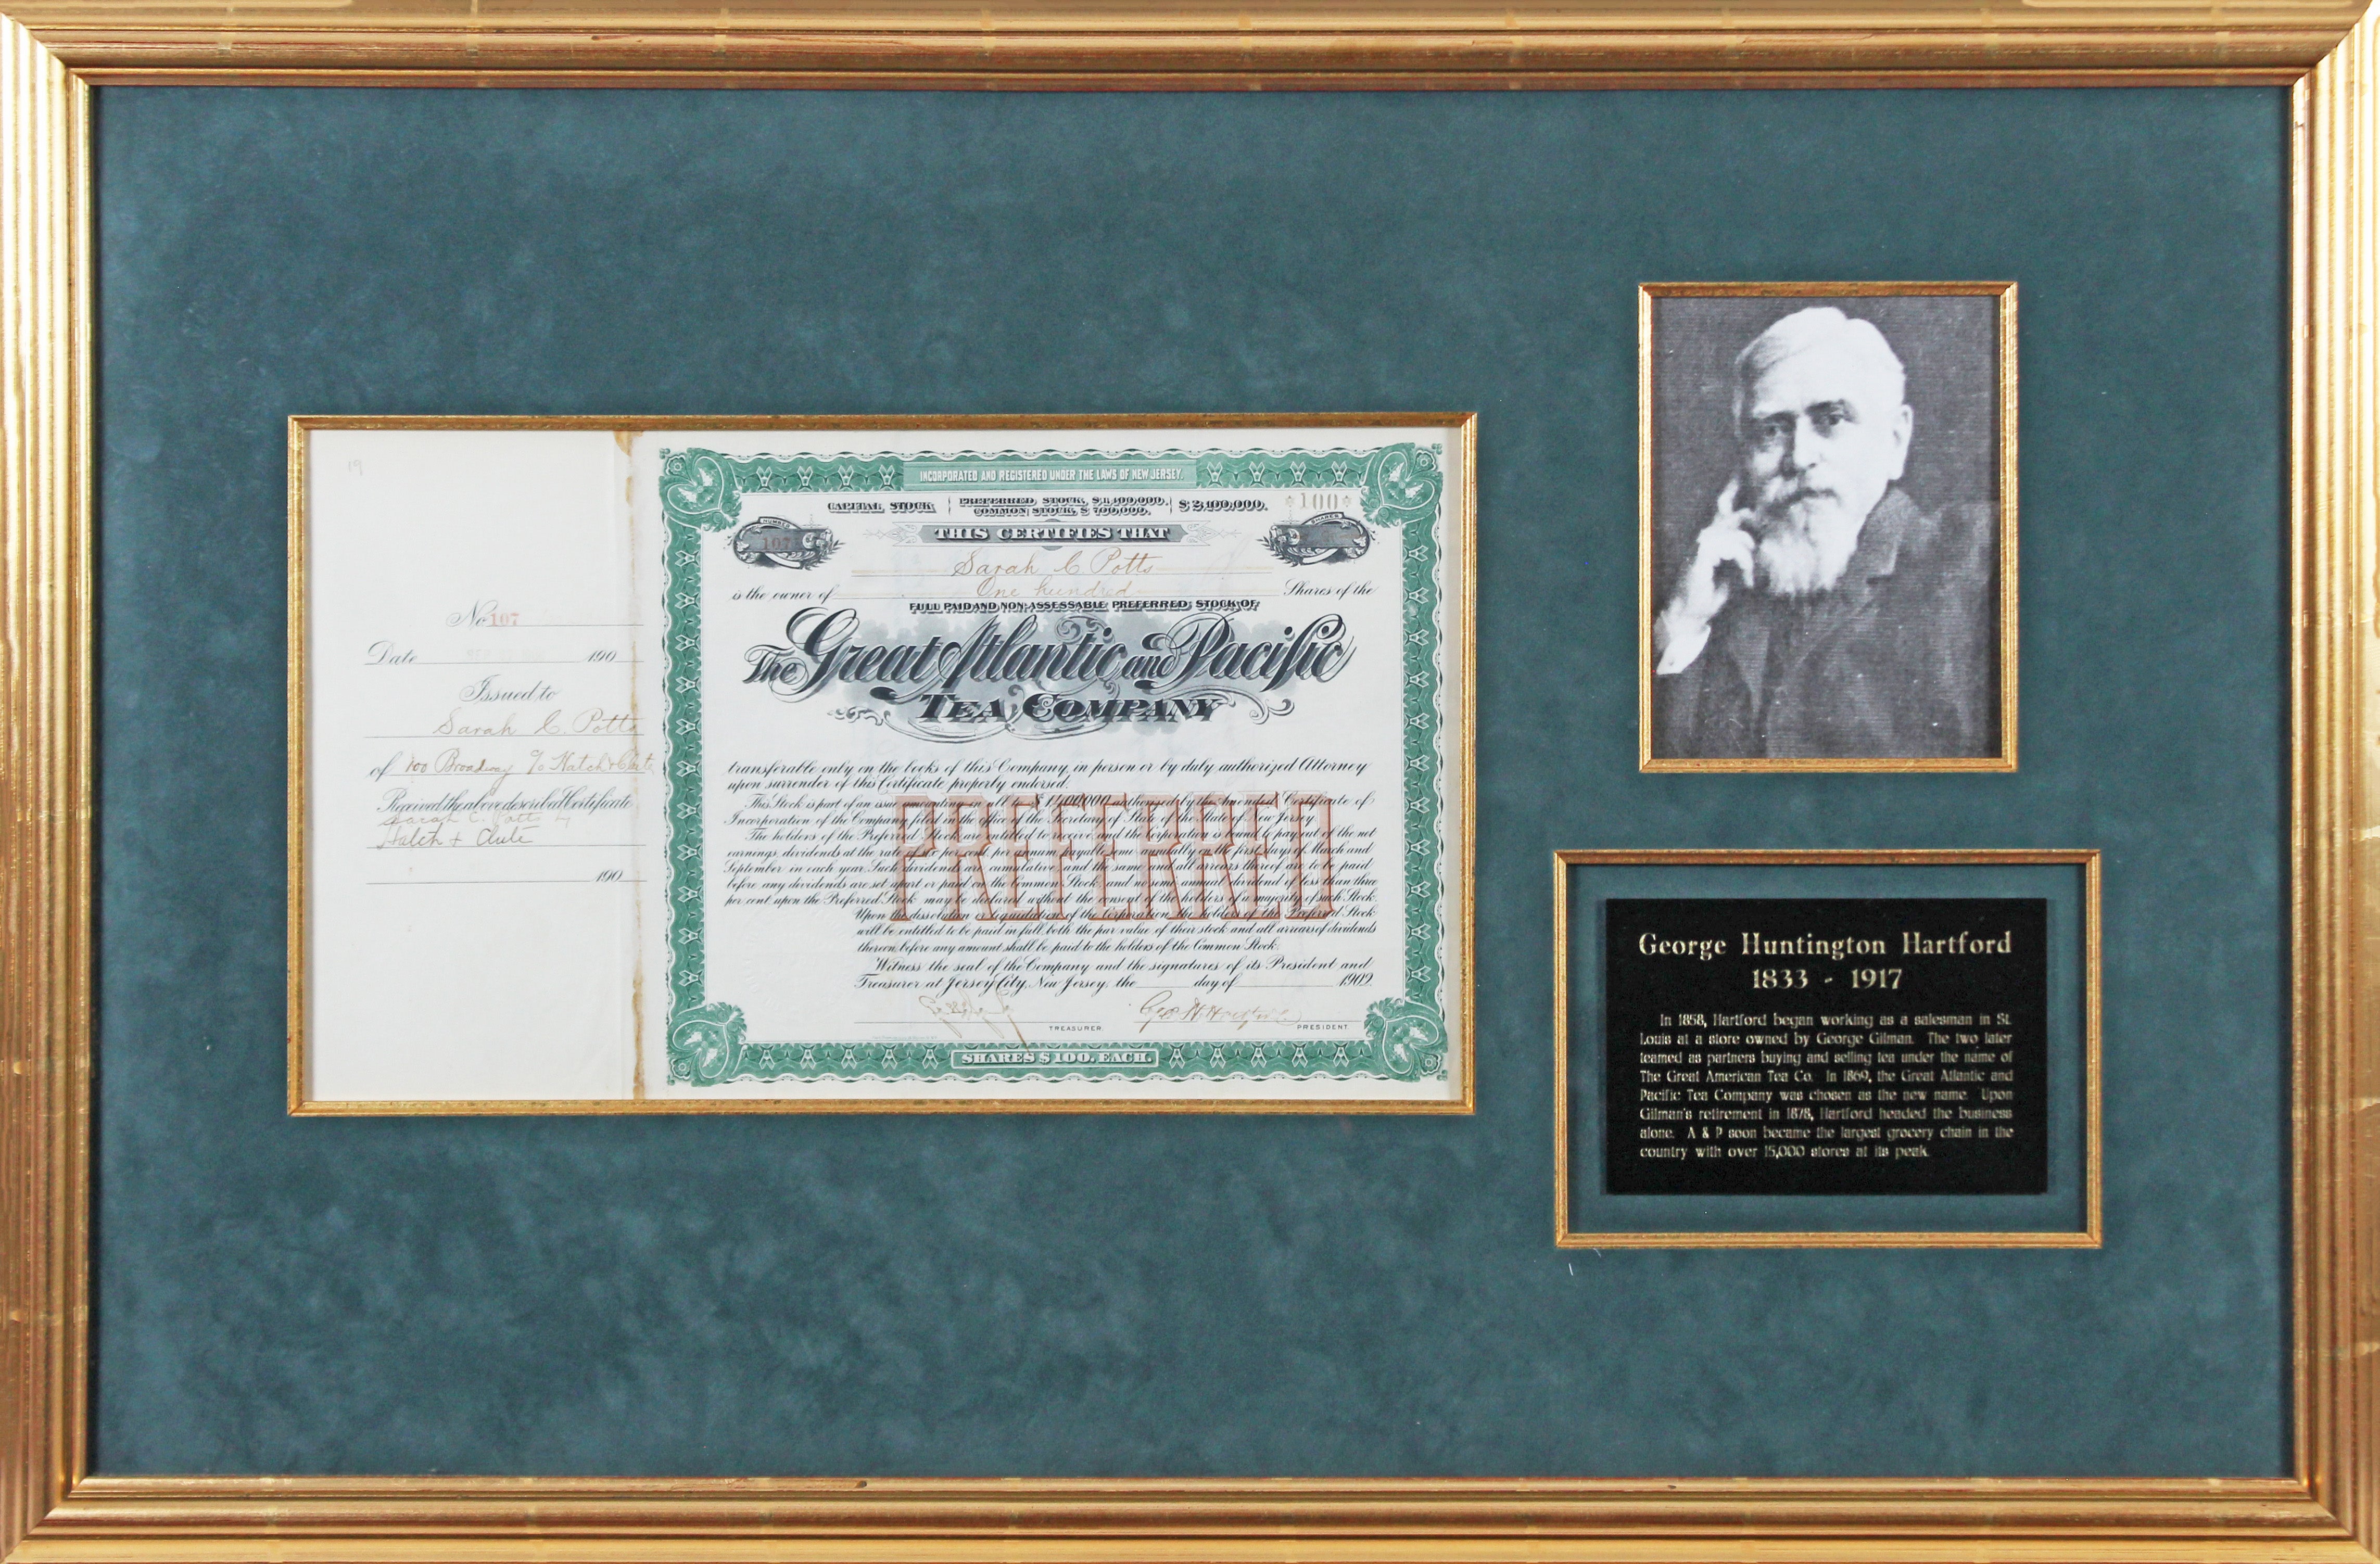 19
No 107
Date 190
Issued to
Sarah C. Potts
of 100 Broadway c/o Hatch & Clute
Received the above described Certificate
Sarah C. Potts by
Hatch + Clute
190
INCORPORATED AND REGISTERED UNDER THE LAWS OF NEW JERSEY.
CAPITAL STOCK PREFERRED STOCK, $1,400,000. COMMON STOCK, $700,000. $2,100,000.
100
NUMBER
107
SHARES
THIS CERTIFIES THAT
Sarah C Potts
is the owner of One hundred Shares of the
FULL PAID AND NON-ASSESSABLE PREFERRED STOCK OF
The Great Atlantic and Pacific
TEA COMPANY
transferable only on the books of this Company, in person or by duly authorized Attorney
upon surrender of this Certificate properly endorsed.
This Stock is part of an issue amounting in all to $1,400,000 authorized by the Amended Certificate of
Incorporation of the Company filed in the office of the Secretary of State of the State of New Jersey.
The holders of the Preferred Stock are entitled to receive and the Corporation is bound to pay out of the net
earnings, dividends at the rate of six per cent. per annum, payable semi-annually on the first days of March and
September in each year. Such dividends are cumulative, and the same and all arrears thereof are to be paid
before any dividends are set apart or paid on the Common Stock, and no semi-annual dividend of less than three
per cent upon the Preferred Stock may be declared without the consent of the holders of a majority of such Stock.
Upon the dissolution or liquidation of the Corporation the holders of the Preferred Stock
will be entitled to be paid in full both the par value of their stock and all arrears of dividends
thereon before any amount shall be paid to the holders of the Common Stock.
PREFERRED
Witness the seal of the Company and the signatures of its President and
Treasurer at Jersey City, New Jersey, the day of 1902
Geo H Hartford
TREASURER. PRESIDENT.
SHARES $100. EACH.
George Huntington Hartford
1833 - 1917
In 1858, Hartford began working as a salesman in St.
Louis at a store owned by George Gilman. The two later
teamed as partners buying and selling tea under the name of
The Great American Tea Co. In 1869, the Great Atlantic and
Pacific Tea Company was chosen as the new name. Upon
Gilman's retirement in 1878, Hartford headed the business
alone. A & P soon became the largest grocery chain in the
country with over 15,000 stores at its peak.